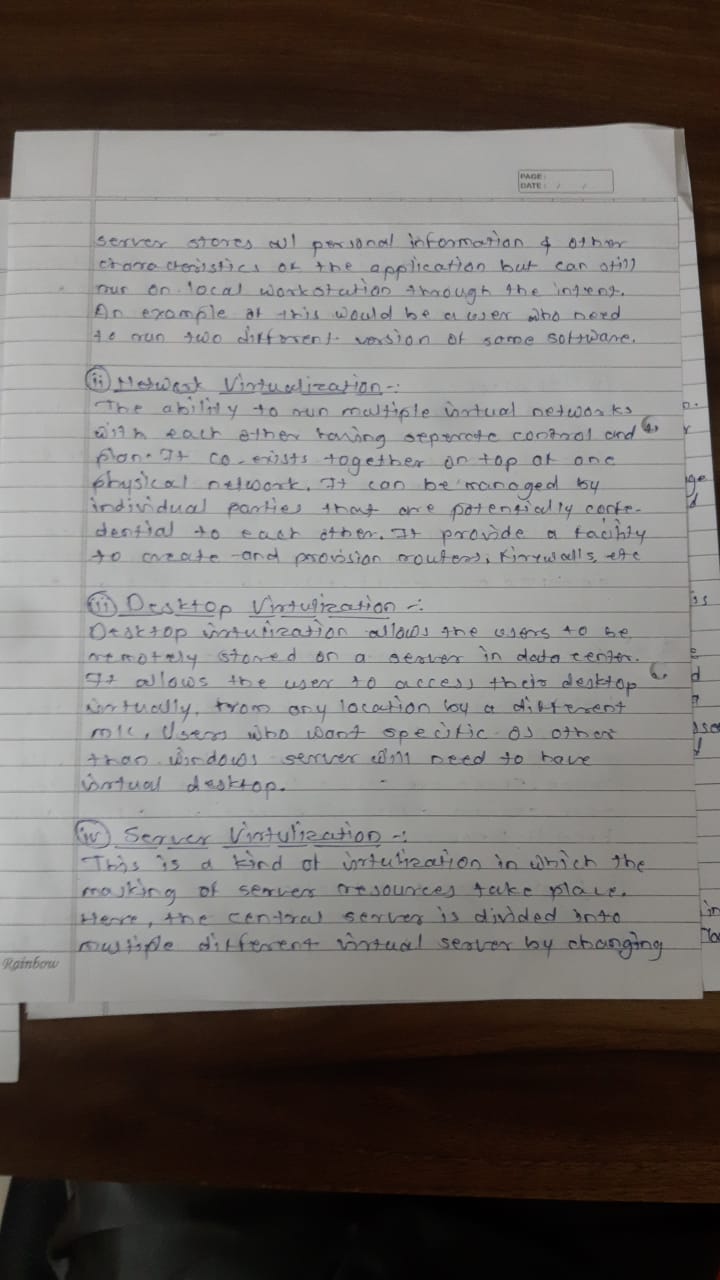 PAGE:
DATE: / /
server stores all personal information & other
characteristics of the application but can still
run on local workstation through the intent.
An example of this would be a user who need
to run two different version of same software.
(ii) Network Virtualization -:
The ability to run multiple virtual networks
with each other having seperate control and
plan. It co-exists together on top of one
physical network. It can be managed by
individual parties that are potentially confe-
dential to each other. It provide a facility
to create and provision routers, firewalls, etc
(iii) Desktop Virtulization -:
Desktop virtulization allows the users to be
remotely stored on a server in data center.
It allows the user to access their desktop
virtually, from any location by a different
m/c. Users who want specific OS other
than windows server will need to have
virtual desktop.
(iv) Server Virtulization -:
This is a kind of virtulization in which the
masking of server resources take place.
Here, the central server is divided into
multiple different virtual server by changing
Rainbow